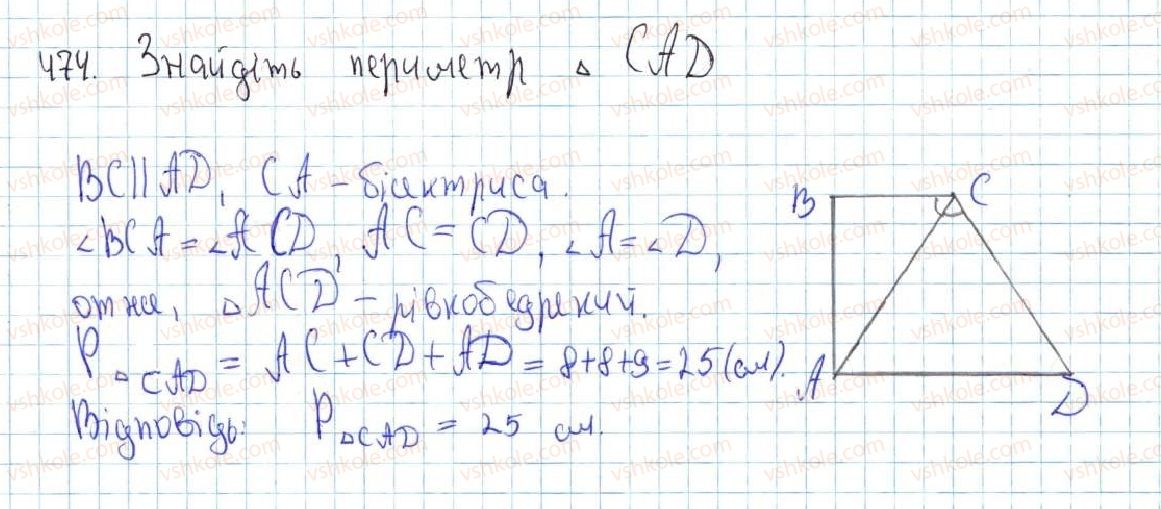 474. Знайдіть периметр △ CAD
BC || AD, CA – бісектриса.
∠BCA = ∠ACD, AC = CD, ∠A = ∠D,
отже, △ACD – рівнобедрений.
P△CAD = AC + CD + AD = 8+8+9 = 25 (см).
Відповідь: P△CAD = 25 см.
B C
A D